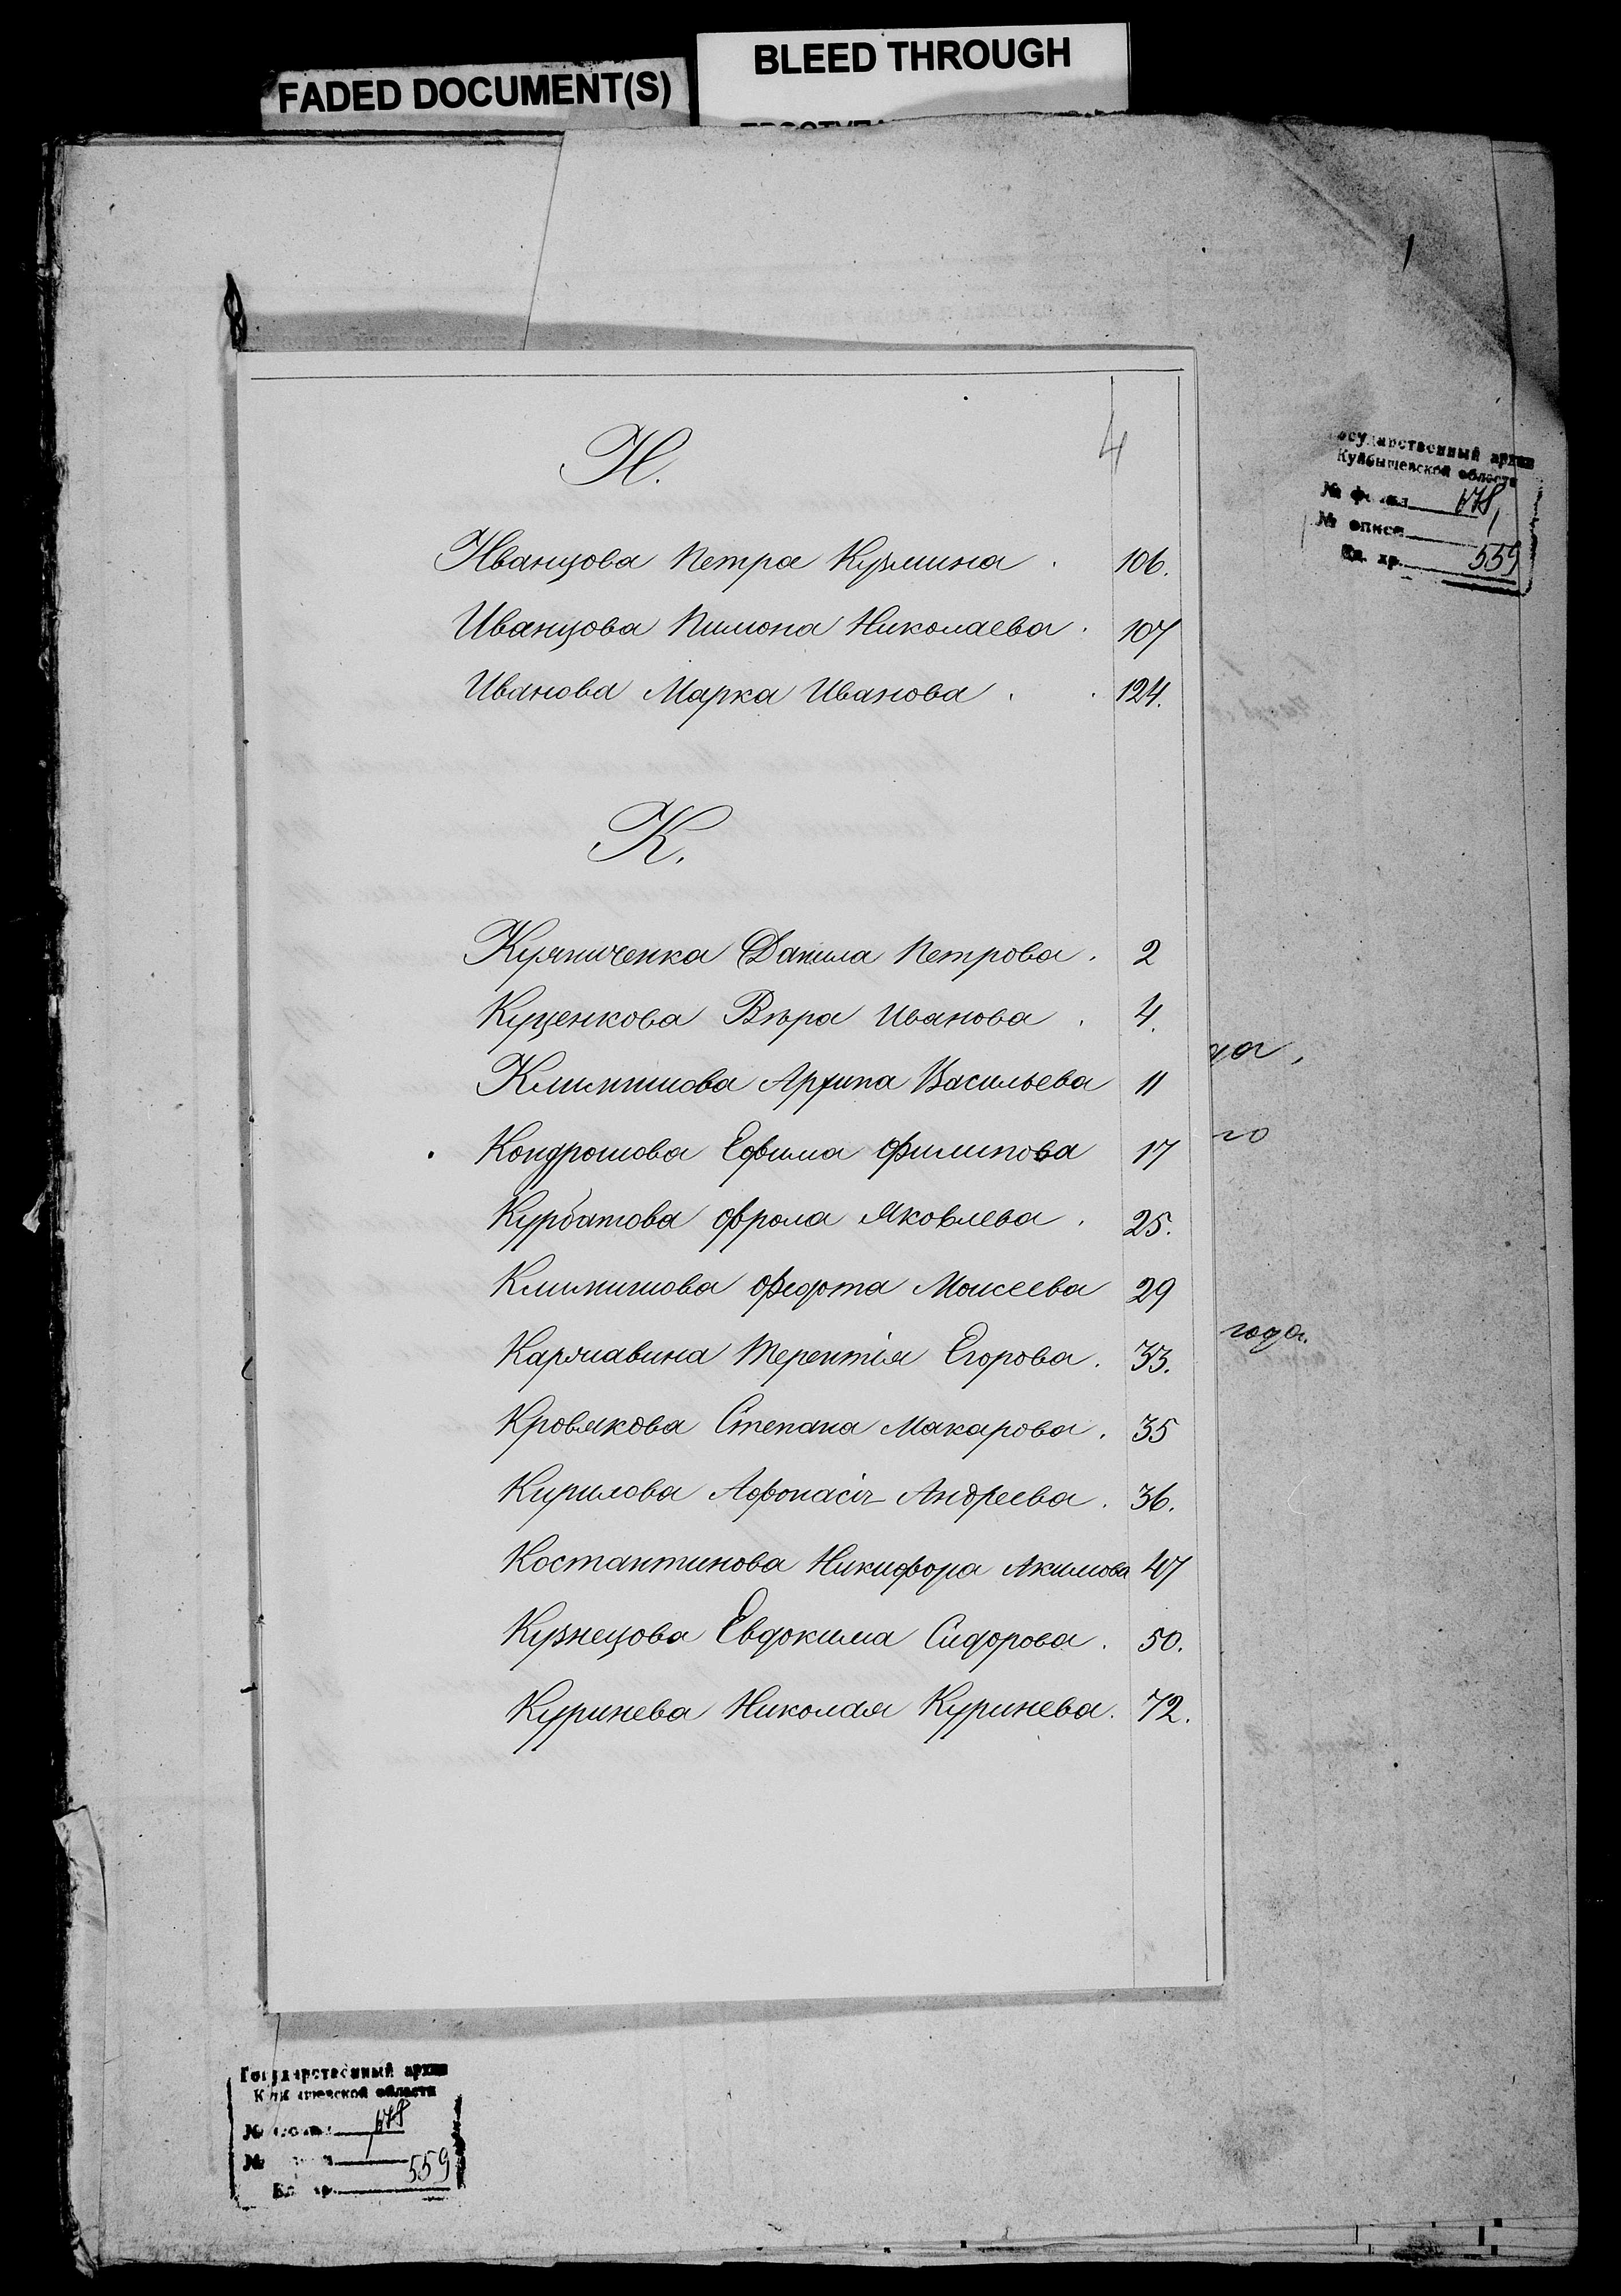 FADED DOCUMENT(S)
BLEED THROUGH
4
И.
Иванцова Петра Кузмина . 106.
Иванцова Пимона Николаева . 107
Иванова Марка Иванова . . 124.
К.
Данила Петрова . 2
Кущенкова Вѣра Иванова . 4.
Климпшова Архипа Васильева 11
Кондрошова Ефима Филипова 17
Курбатова Фрола Яковлева . 25.
Климпшова Федота Моисеева 29
Карявина Терентія Егорова . 33.
Кровякова Степана Макарова . 35
Кирилова Афонасія Андреева . 36.
Костантинова Никифора Акимова 47
Кузнецова Евдокима Сидорова . 50.
Куринева Николая Куринева . 72.
года.
Государственный архив
Куйбышевской области
№ фонда 678
№ описи 1
Ед. хр. 559
Государственный архив
Куйбышевской области
№ фонда 678
№
Ед. хр. 559